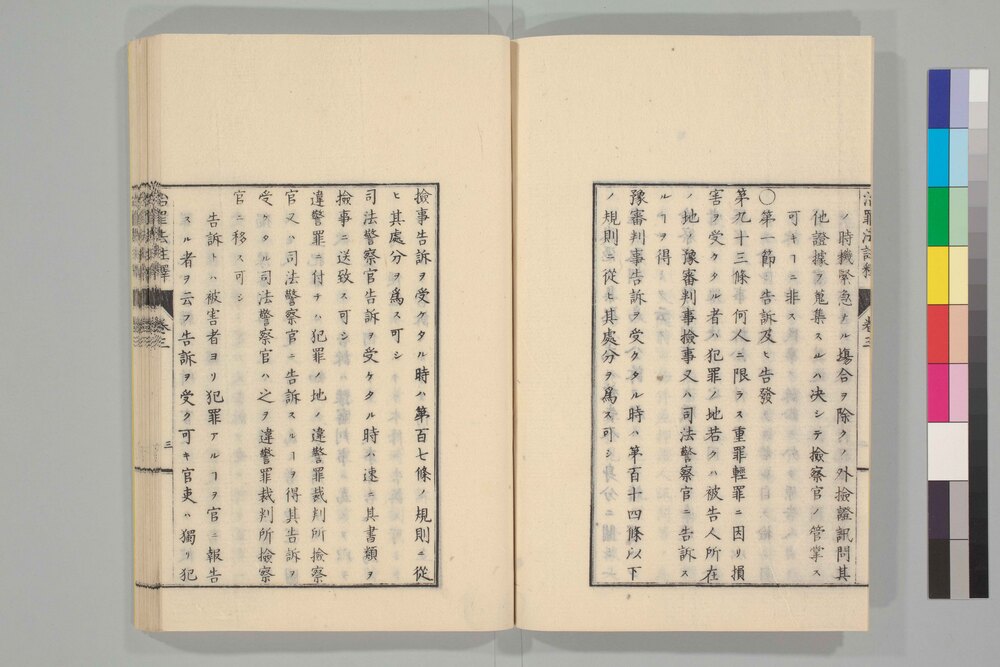 治罪法註釋 卷三
ノ時機緊急ナル塲合ヲ除クノ外撿證訊問其
他證據ヲ蒐集スルハ决シテ撿察官ノ管掌ス
可キヿニ非ス
〇第一節 告訴及ヒ告發
第九十三條 何人ニ限ラス重罪輕罪ニ因リ損
害ヲ受ケタル者ハ犯罪ノ地若クハ被告人所在
ノ地ノ豫審判事撿事又ハ司法警察官ニ告訴ス
ルヿヲ得
豫審判事告訴ヲ受ケタル時ハ第百十四條以下
ノ規則ニ從ヒ其處分ヲ爲ス可シ
撿事告訴ヲ受ケタル時ハ第百七條ノ規則ニ從
ヒ其處分ヲ爲ス可シ
司法警察官告訴ヲ受ケタル時ハ速ニ其書類ヲ
撿事ニ送致ス可シ
違警罪ニ付テハ犯罪ノ地ノ違警罪裁判所撿察
官又ハ司法警察官ニ告訴スルヿヲ得其告訴ヲ
受ケタル司法警察官ハ之ヲ違警罪裁判所撿察
官ニ移ス可シ
告訴トハ被害者ヨリ犯罪アルヿヲ官ニ報告
スル者ヲ云フ告訴ヲ受ク可キ官吏ハ獨リ犯
治罪法註釋 卷三 三